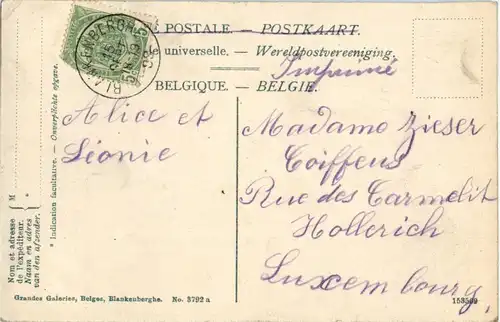 E POSTALE - POSTKAART.
e universelle. - Wereldpostvereeniging.
Imprimé
BELGIQUE - BELGIE.
BLANKENBERGHE
Alice et
Léonie
Madame Zieser
Coiffeus
Rue des Carmelit
Hollerich
Luxembourg,
* Indication facultative. - Onverplichte opgave.
M
Nom et adresse
de l'expéditeur.
Naam en adres
van den afzender.
Grandes Galeries, Belges, Blankenberghe. No. 3792 a